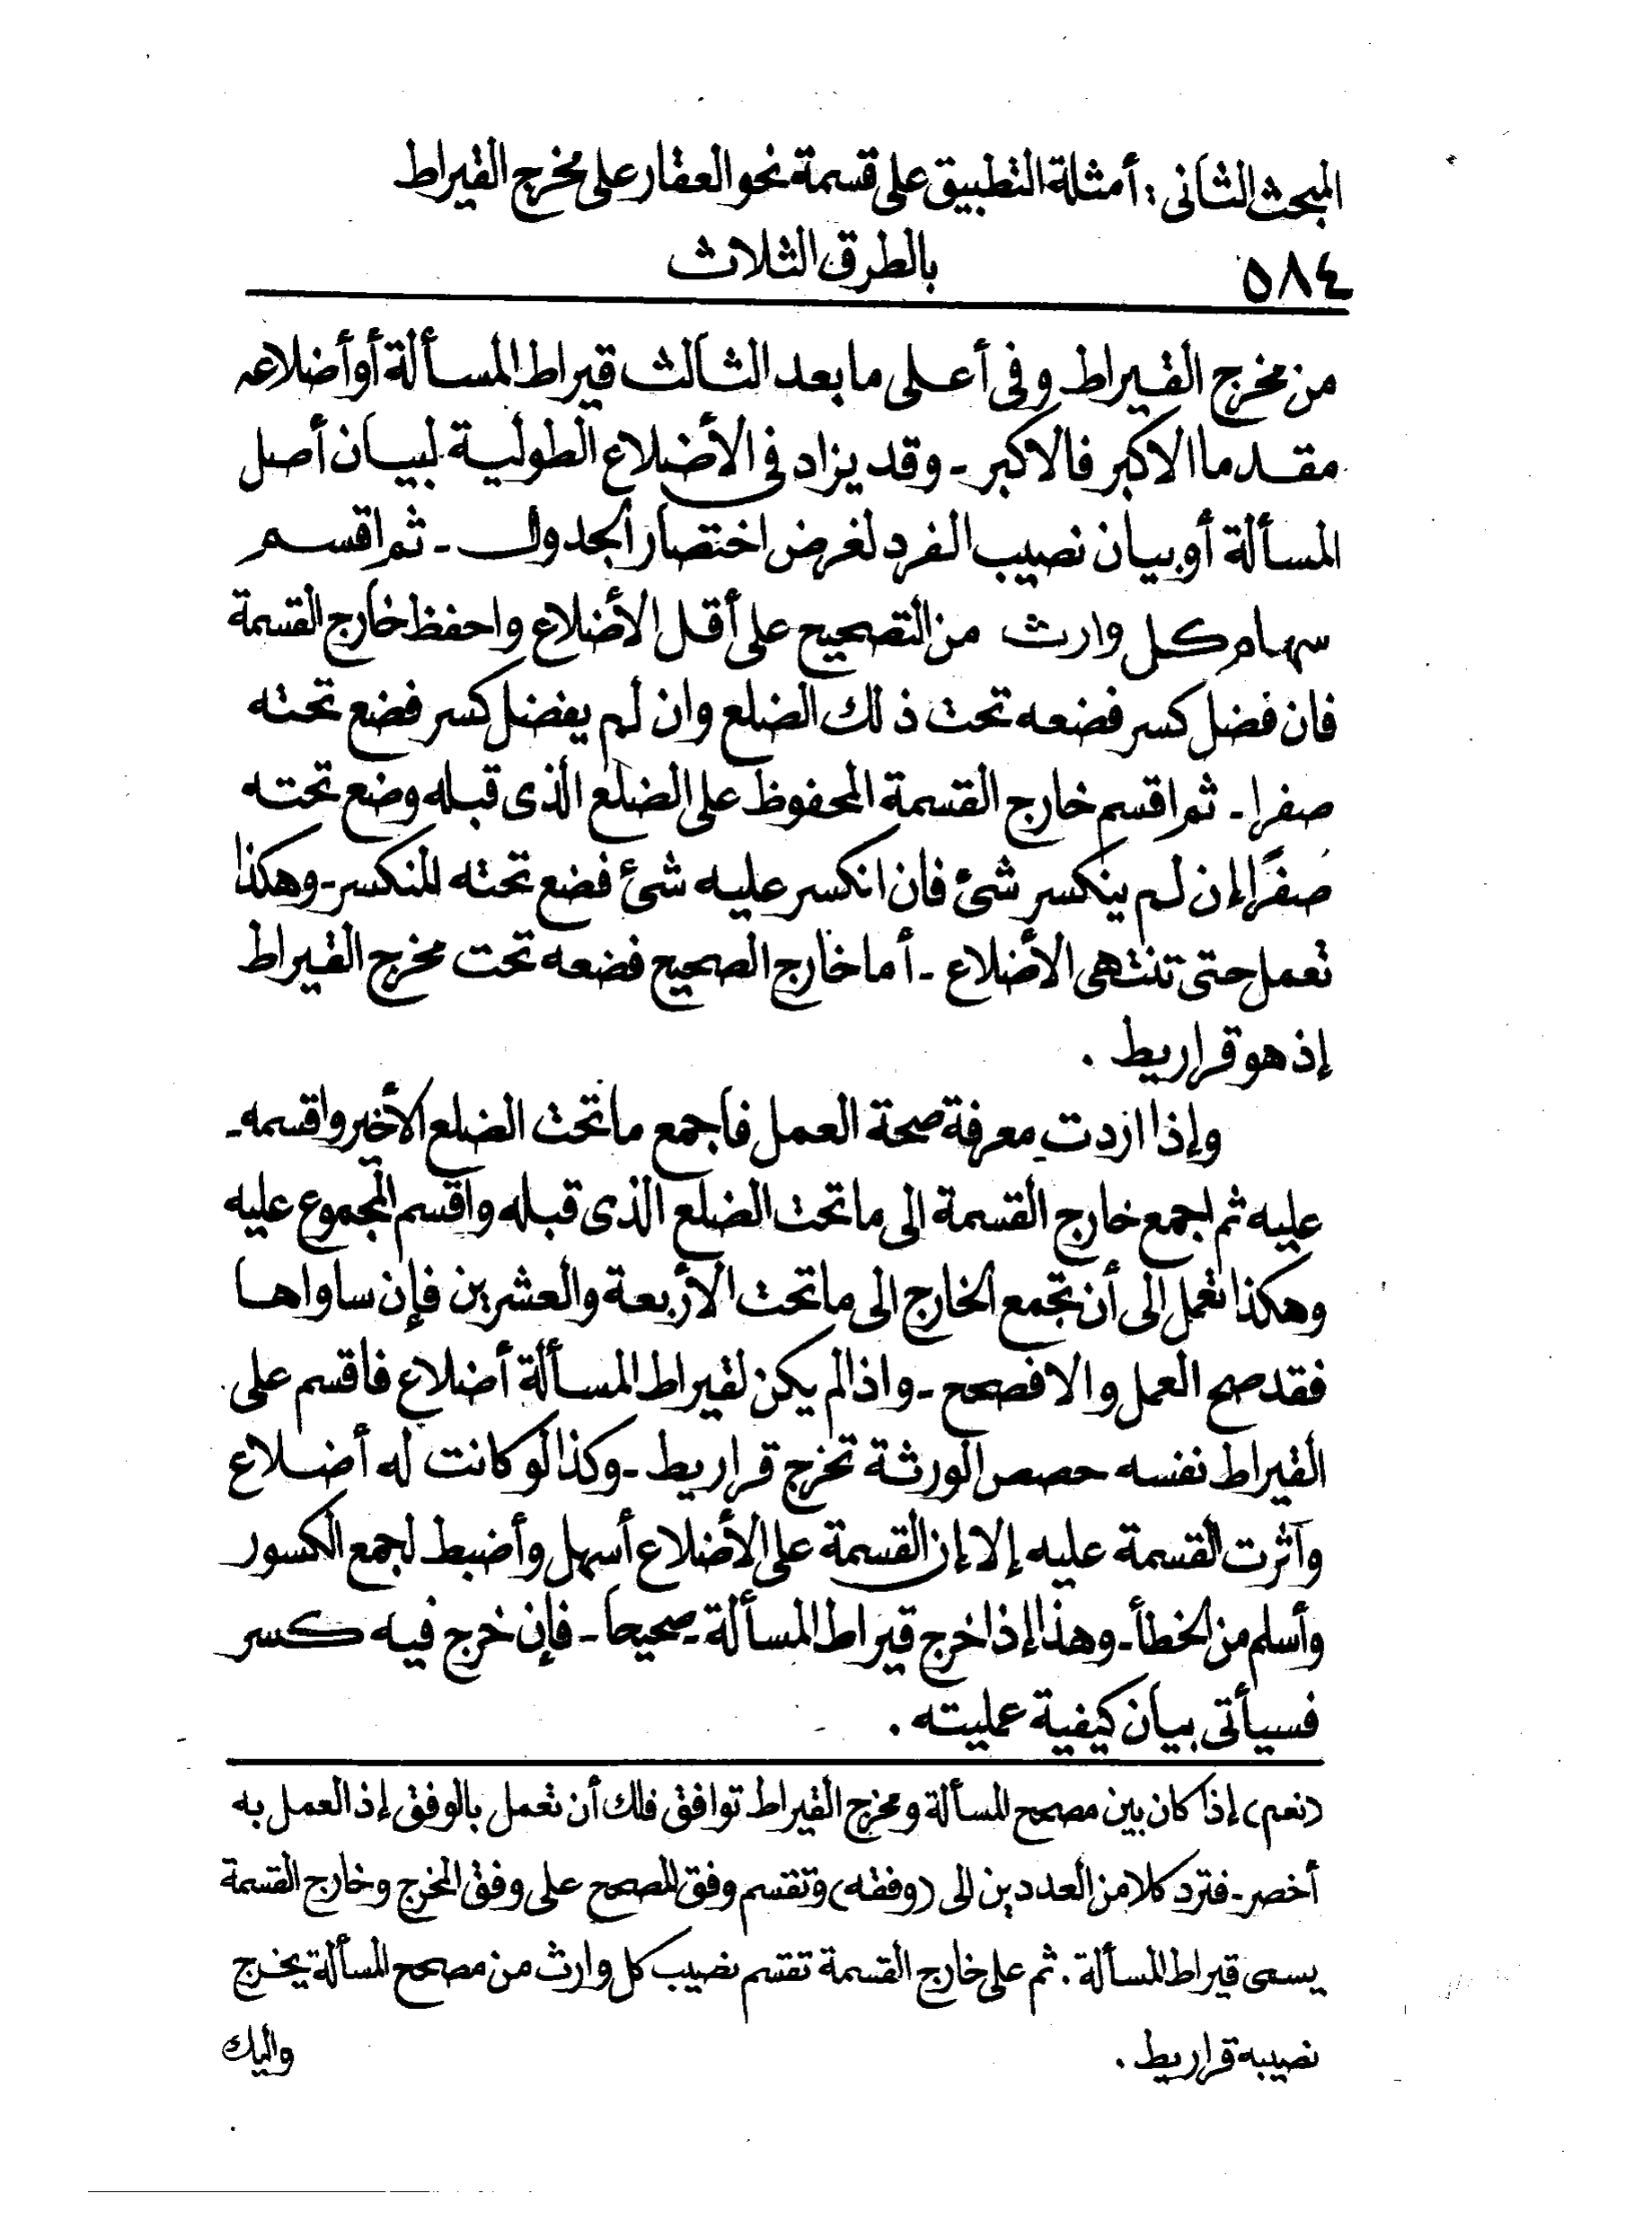 المبحث الثانى : أمثلة التطبيق على قسمة نحو العقار على مخرج القيراط
٥٨٤ بالطرق الثلاث
من مخرج القيراط وفى أعلى ما بعد الثالث قيراط المسألة أو أضلاعه
مقدما الاكبر فالاكبر - وقد يزاد فى الأضلاع الطولية لبيان أصل
المسألة أو بيان نصيب الفرد لغرض اختصار الجدول - ثم اقسم
سهام كل وارث من التصحيح على أقل الأضلاع واحفظ خارج القسمة
فان فضل كسر فضعه تحت ذلك الضلع وان لم يفضل كسر فضع تحته
صفرا - ثم اقسم خارج القسمة المحفوظ على الضلع الذى قبله وضع تحته
صفرًا إن لم ينكسر شئ فان انكسر عليه شئ فضع تحته المنكسر - وهكذا
تعمل حتى تنتهى الأضلاع - أما خارج الصحيح فضعه تحت مخرج القيراط
إذ هو قراريط .
وإذا اردت معرفة صحة العمل فاجمع ما تحت الضلع الأخير واقسمه -
عليه ثم اجمع خارج القسمة الى ما تحت الضلع الذى قبله واقسم المجموع عليه
وهكذا تعمل الى أن تجمع الخارج الى ما تحت الأربعة والعشرين فإن ساواها
فقد صح العمل والا فصحح - واذا لم يكن لقيراط المسألة أضلاع فاقسم على
القيراط نفسه حصص الورثة تخرج قراريط - وكذا لو كانت له أضلاع
وآثرت القسمة عليه إلا إن القسمة على الأضلاع أسهل وأضبط لجمع الكسور
وأسلم من الخطأ - وهذا إذا خرج قيراط المسألة - صحيحا - فإن خرج فيه كسر
فسيأتى بيان كيفية عمليته .
(نعم) إذا كان بين مصحح المسألة ومخرج القيراط توافق فلك أن تعمل بالوفق إذ العمل به
أخصر - فترد كلا من العددين الى (وفقه) وتقسم وفق المصحح على وفق المخرج وخارج القسمة
يسمى قيراط المسألة . ثم على خارج القسمة تقسم نصيب كل وارث من مصحح المسألة يخرج
نصيبه قراريط . واليك